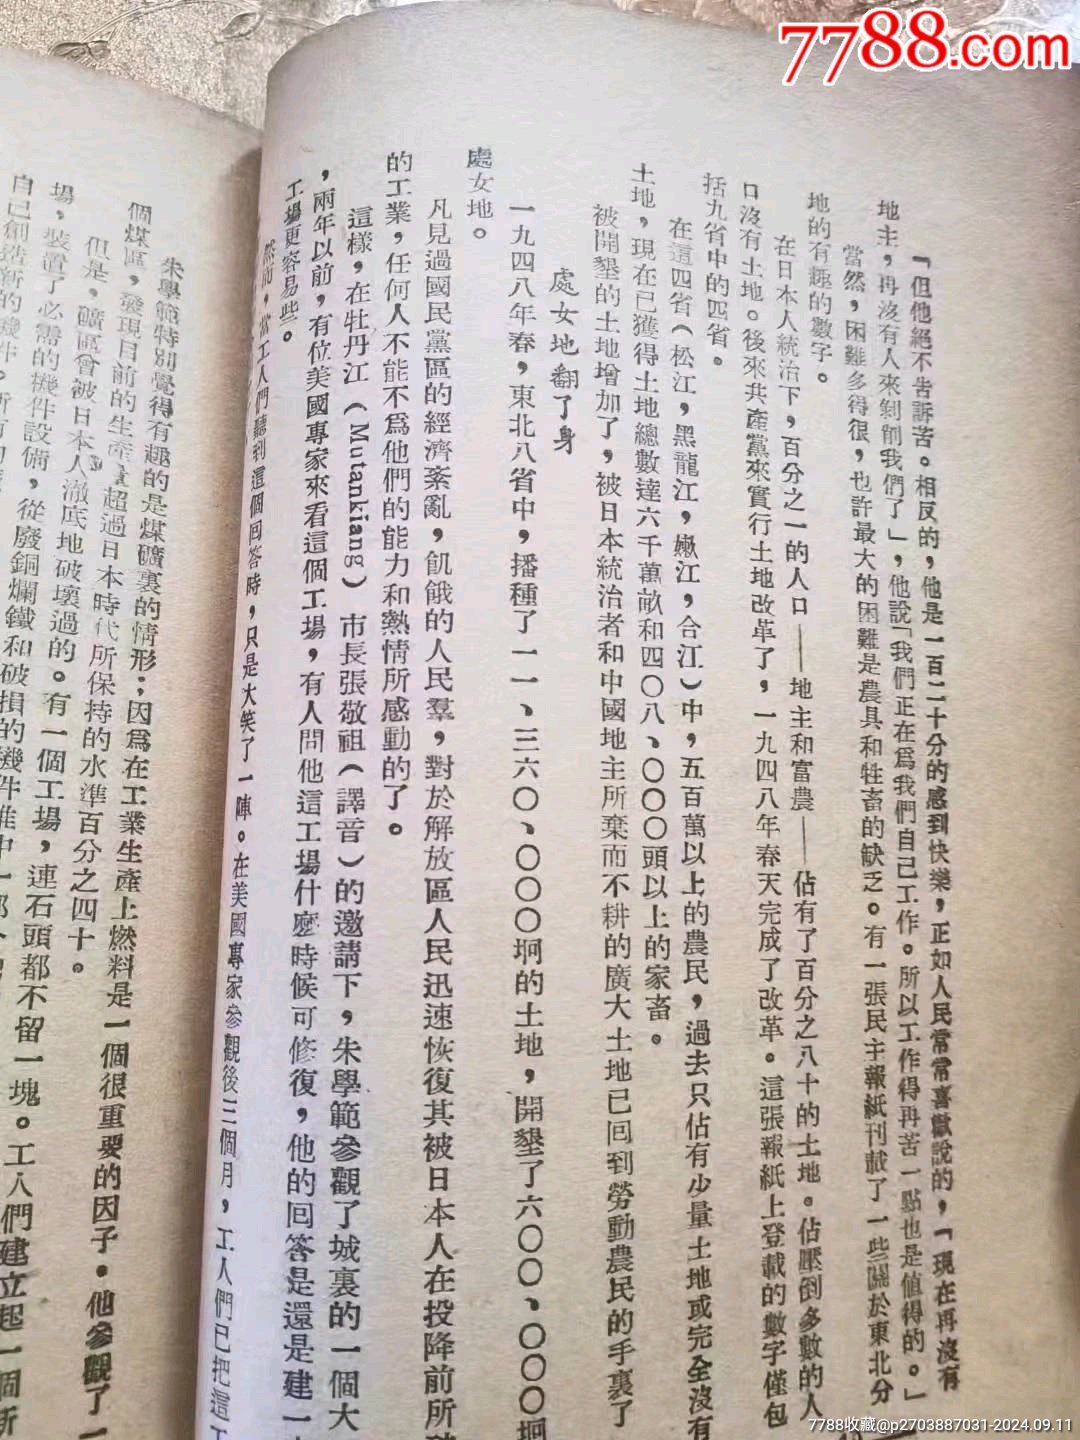 7788.com
「但他絕不告訴苦。相反的，他是一百二十分的感到快樂，正如人民常常喜歡說的，「現在再沒有
地主，再沒有人來剝削我們了」，他說「我們正在爲我們自己工作。所以工作得再苦一點也是值得的。」
當然，困難多得很，也許最大的困難是農具和牲畜的缺乏。有一張民主報紙刊載了一些關於東北分
地的有趣的數字。
在日本人統治下，百分之一的人口——地主和富農——佔有了百分之八十的土地。佔壓倒多數的人
口沒有土地。後來共產黨來實行土地改革了，一九四八年春天完成了改革。這張報紙上登載的數字僅包
括九省中的四省。
在這四省（松江，黑龍江，嫩江，合江）中，五百萬以上的農民，過去只佔有少量土地或完全沒有
土地，現在已獲得土地總數達六千萬畝和四〇八、〇〇〇頭以上的家畜。
被開墾的土地增加了，被日本統治者和中國地主所棄而不耕的廣大土地已回到勞動農民的手裏了
處女地翻了身
一九四八年春，東北八省中，播種了一一、三六〇、〇〇〇垌的土地，開墾了六〇〇、〇〇〇垌
處女地。
凡見過國民黨區的經濟紊亂，飢餓的人民羣，對於解放區人民迅速恢復其被日本人在投降前所破
的工業，任何人不能不爲他們的能力和熱情所感動的了。
這樣，在牡丹江（Mutankiang）市長張敬祖（譯音）的邀請下，朱學範參觀了城裏的一個大
，兩年以前，有位美國專家來看這個工場，有人問他這工場什麼時候可修復，他的回答是還是建一
工場更容易些。
然而，當工人們聽到這個回答時，只是大笑了一陣。在美國專家參觀後三個月，工人們已把這工
朱學範特別覺得有趣的是煤礦裏的情形；因爲在工業生產上燃料是一個很重要的因子。他參觀了一
個煤區，發現目前的生產量超過日本時代所保持的水準百分之四十。
但是，礦區會被日本人澈底地破壞過的。有一個工場，連石頭都不留一塊。工人們建立起一個新
場，裝置了必需的機件設備，從廢銅爛鐵和破損的機件堆中一部
自己創造新的機件。所有的
7788收藏@p2703887031-2024.09.11